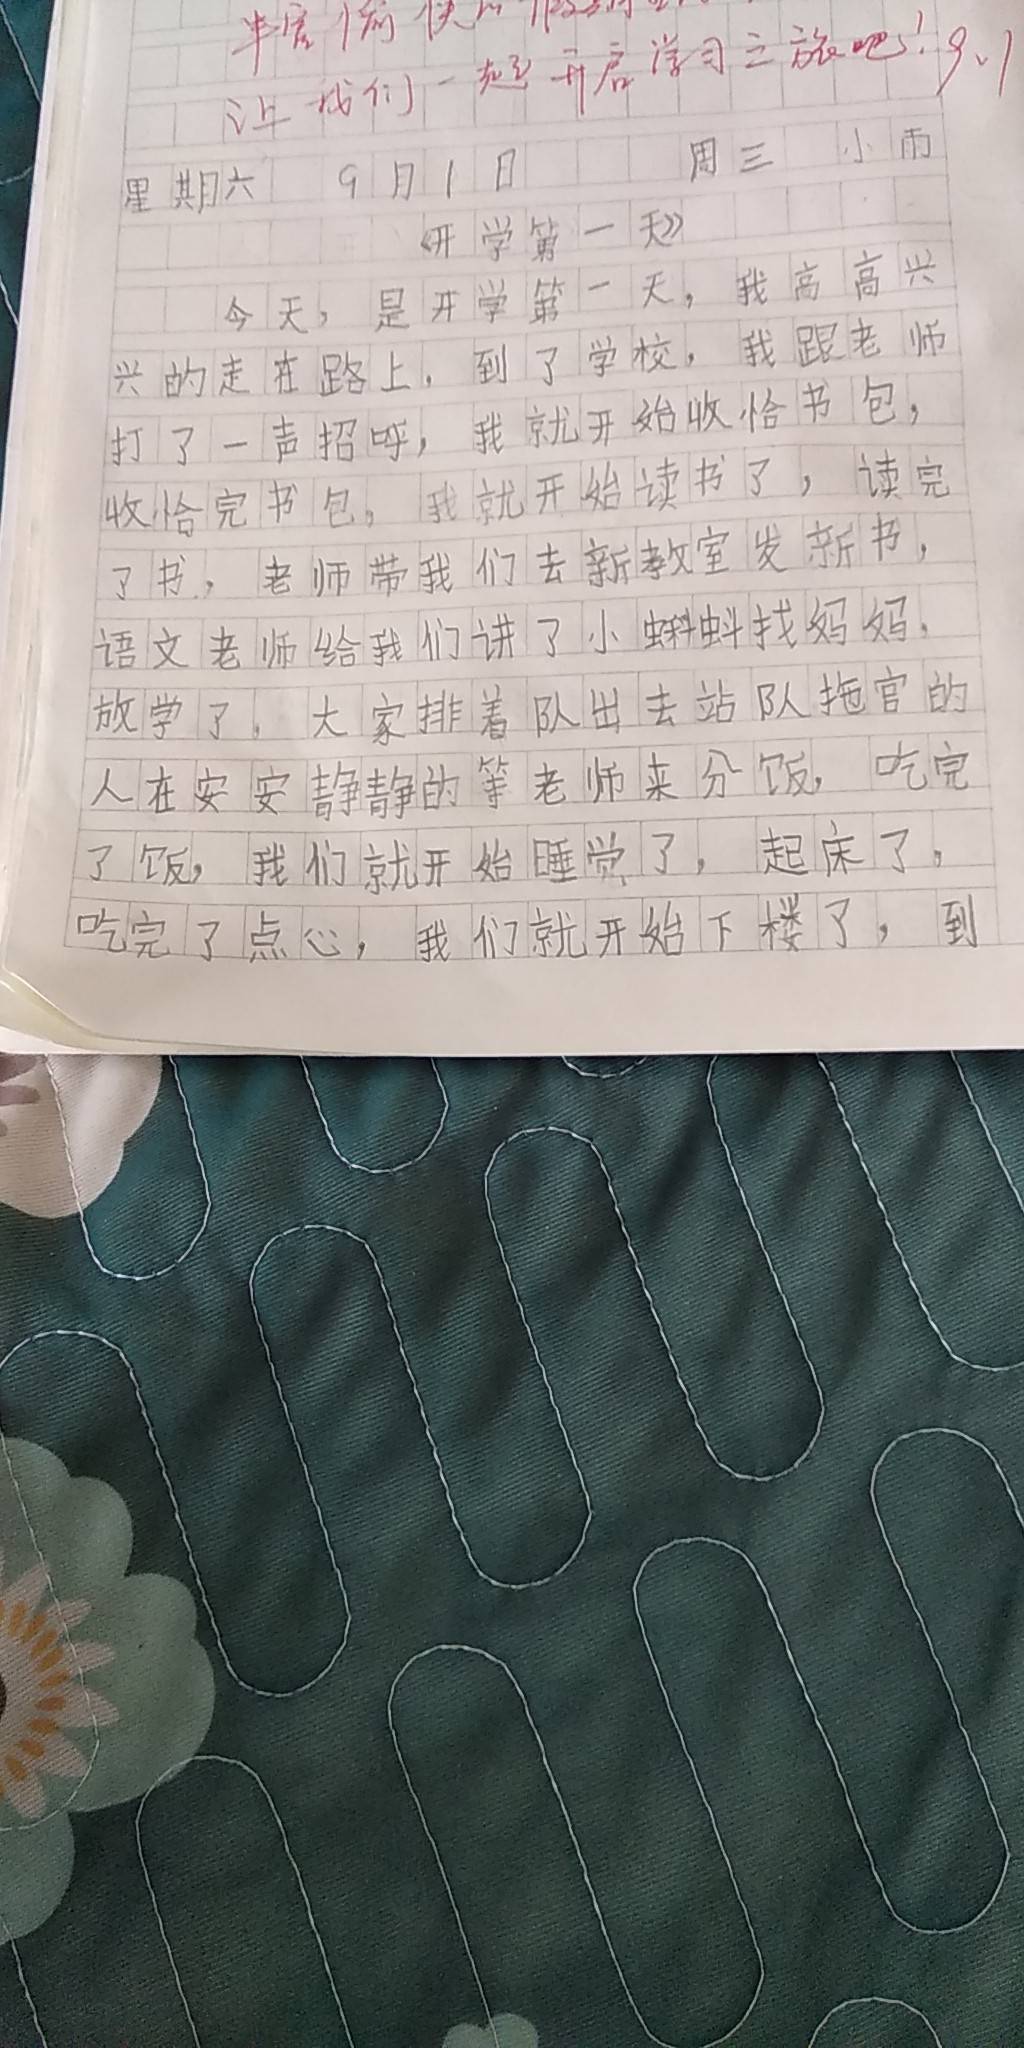 让我们一起开启学习之旅吧!9.1
星期六 9月1日 周三 小雨
《开学第一天》
今天,是开学第一天,我高高兴
兴的走在路上,到了学校,我跟老师
打了一声招呼,我就开始收恰书包,
收恰完书包,我就开始读书了,读完
了书,老师带我们去新教室发新书,
语文老师给我们讲了小蝌蚪找妈妈.
放学了,大家排着队出去站队拖官的
人在安安静静的等老师来分饭,吃完
了饭,我们就开始睡觉了,起床了,
吃完了点心,我们就开始下楼了,到